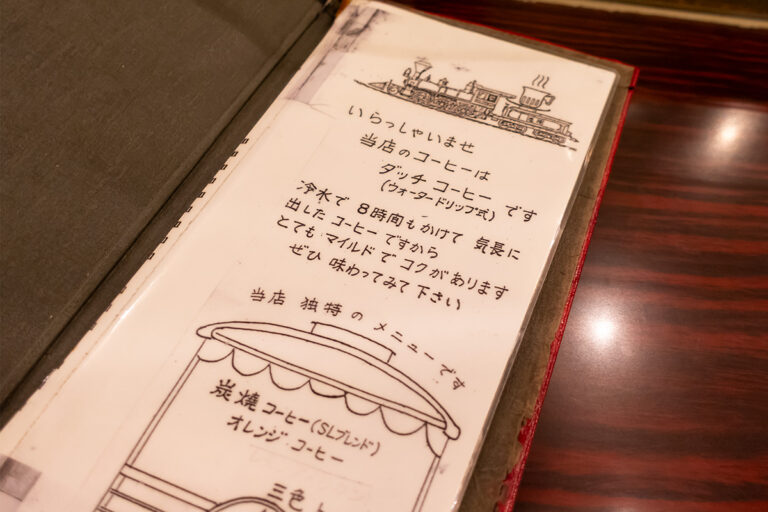 いらっしゃいませ
当店のコーヒーは
ダッチ コーヒー です
(ウォータードリップ式)
冷水で 8時間もかけて 気長に
出した コーヒー ですから
とても マイルド で コク が あります
ぜひ 味わってみて下さい
当店 独特 の メニュー です
炭焼 コーヒー (SLブレンド)
オレンジ・コーヒー
三色